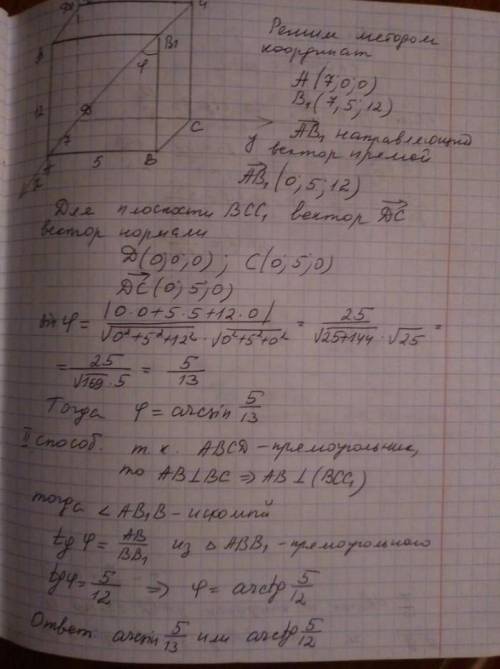 Решим методом
координат
A(7;0;0)
B₁(7;5;12)
AB₁ направляющий
вектор прямой
AB₁(0;5;12)
B₁
φ
12
D
7
5
B
C
y
Для плоскости BCC₁ вектор DC
вектор нормали
D(0;0;0); C(0;5;0)
DC(0;5;0)
sin φ = |0·0+5·5+12·0| / √0²+5²+12² · √0²+5²+0² = 25 / √25+144 · √25 =
= 25 / √169 · 5 = 5/13
Тогда φ = arcsin 5/13
II способ. т.к. ABCD – прямоугольник,
то AB⊥BC ⇒ AB⊥(BCC₁)
тогда ∠AB₁B – искомый
tg φ = AB/BB₁ из △ABB₁ – прямоугольного
tgφ = 5/12 ⇒ φ = arctg 5/12
Ответ arcsin 5/13 или arctg 5/12